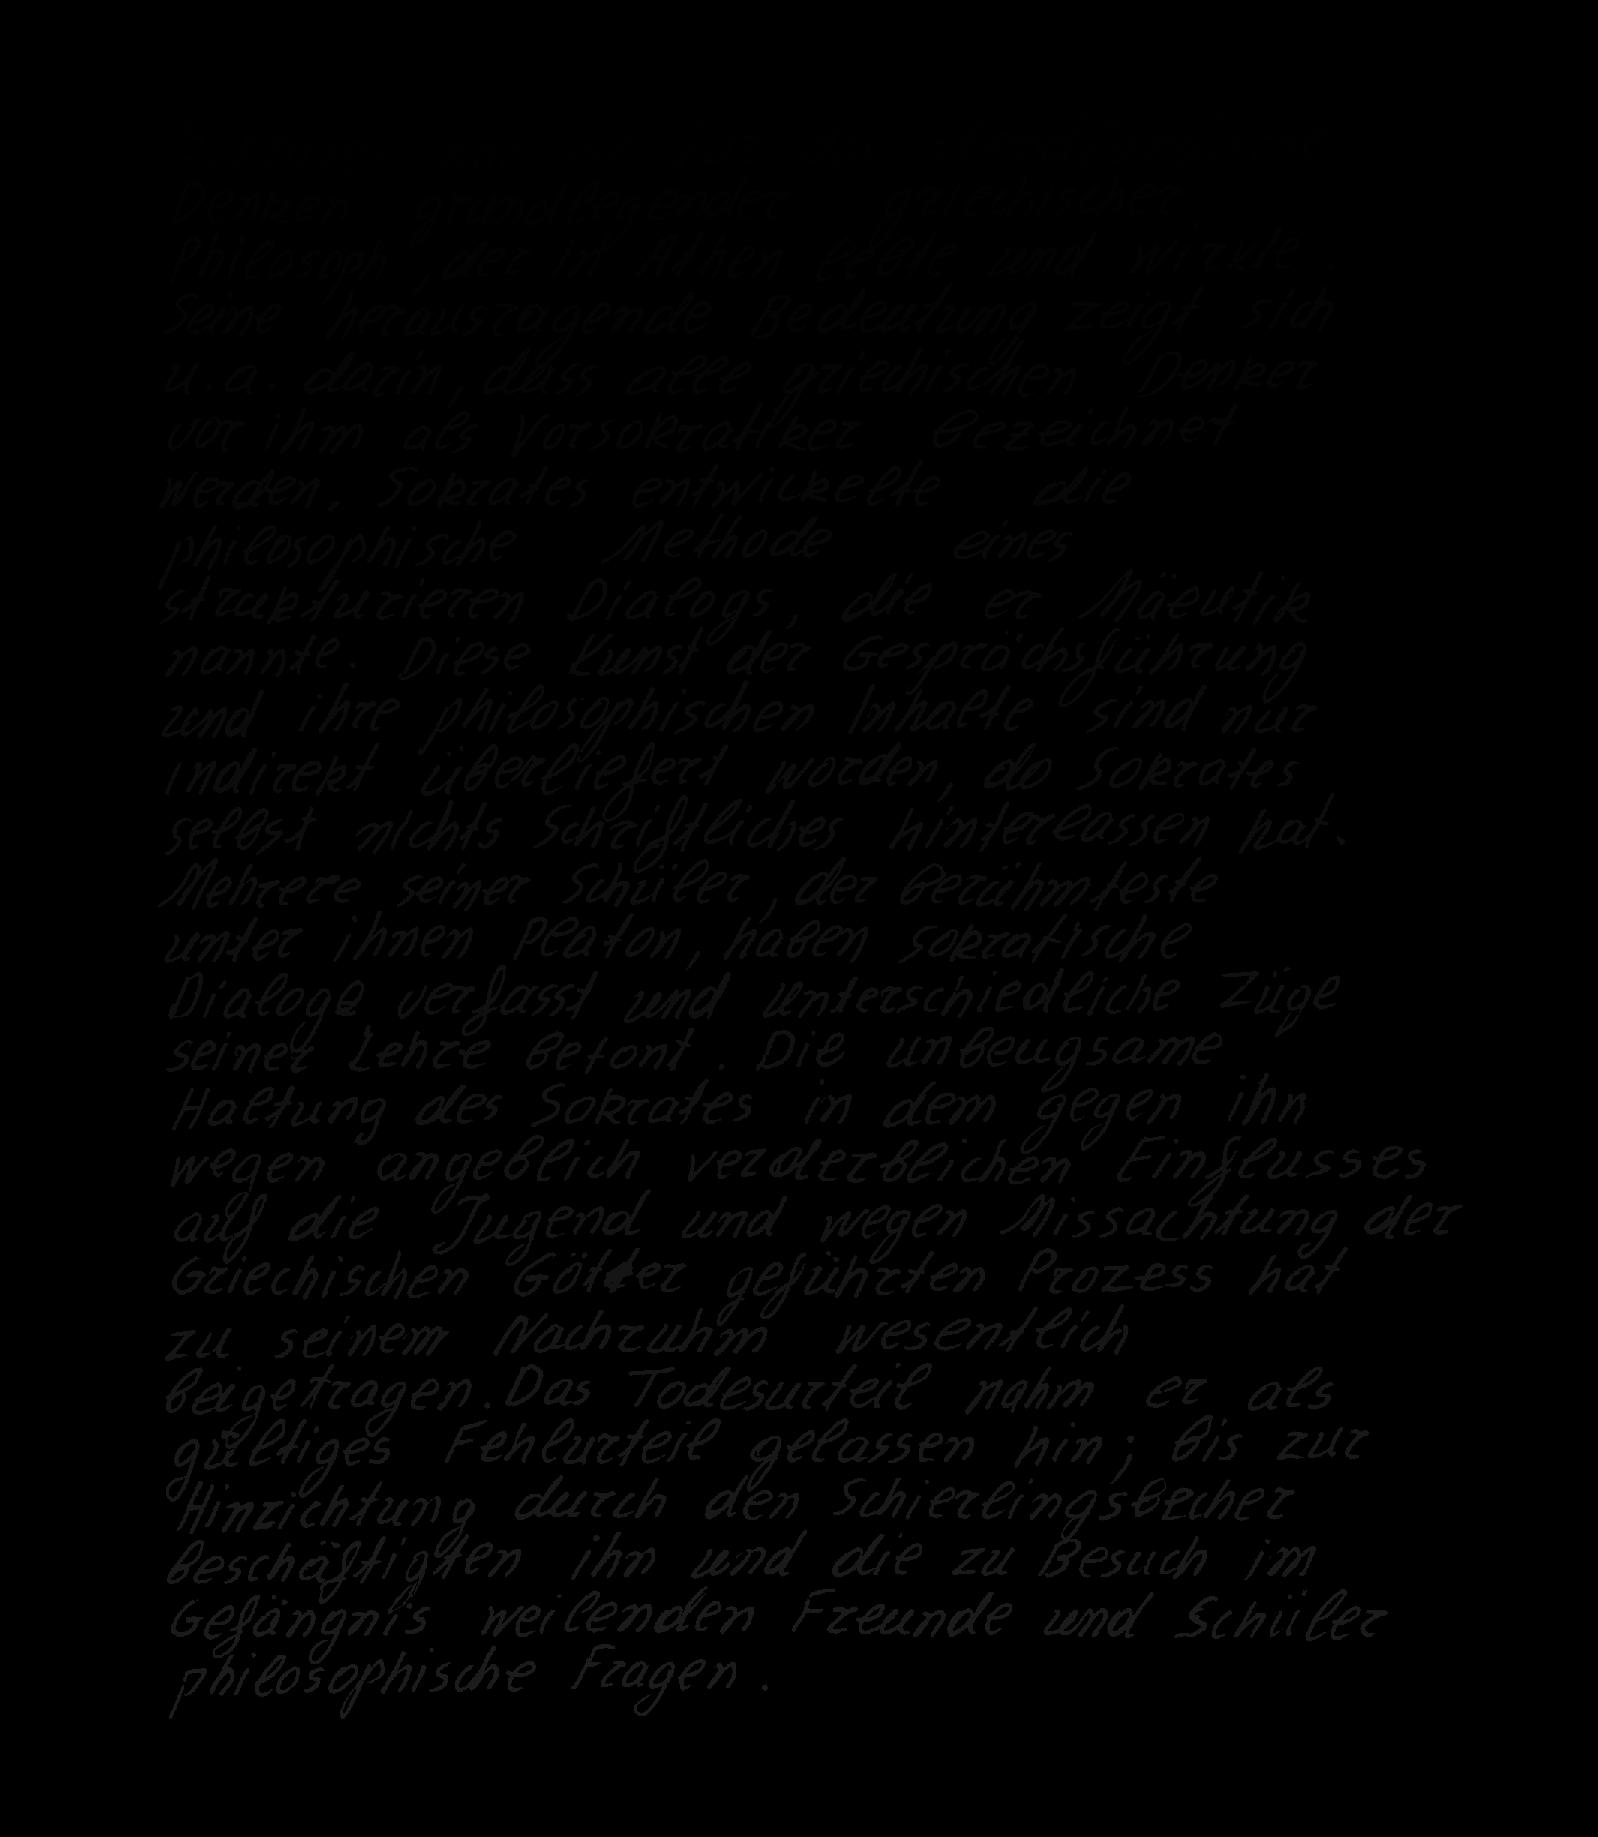 Denken grundlegender griechischer
Philosoph, der in Athen lebte und wirkte.
Seine herausragende Bedeutung zeigt sich
u.a. darin, dass alle griechischen Denker
vor ihm als Vorsokratiker bezeichnet
werden. Sokrates entwickelte die
philosophische Methode eines
strukturieren Dialogs, die er Mäeutik
nannte. Diese Kunst der Gesprächsführung
und ihre philosophischen Inhalte sind nur
indirekt überliefert worden, do Sokrates
selbst nichts Schriftliches hinterlassen hat.
Mehrere seiner Schüler, der berühmteste
unter ihnen Platon, haben sokratische
Dialoge verfasst und unterschiedliche Züge
seiner Lehre betont. Die unbeugsame
Haltung des Sokrates in dem gegen ihn
wegen angeblich verderblichen Einflusses
auf die Jugend und wegen Missachtung der
Griechischen Götter geführten Prozess hat
zu seinem Nachruhm wesentlich
beigetragen. Das Todesurteil nahm er als
gültiges Fehlurteil gelassen hin; bis zur
Hinrichtung durch den Schierlingsbecher
beschäftigten ihn und die zu Besuch im
Gefängnis weilenden Freunde und Schüler
philosophische Fragen.